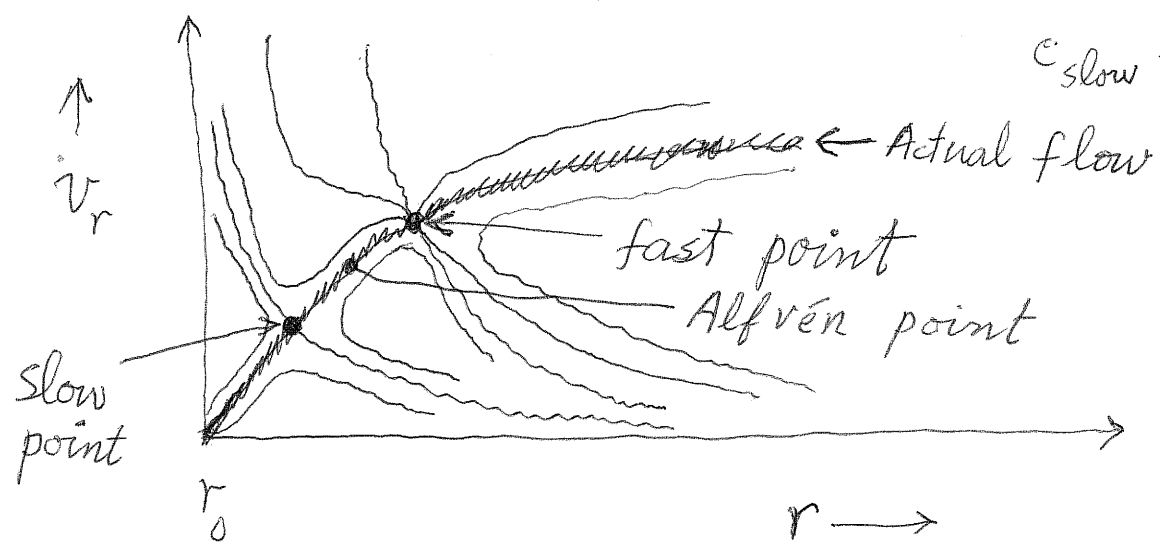 c slow
Actual flow
v r
fast point
Alfvén point
slow
point
r 0
r